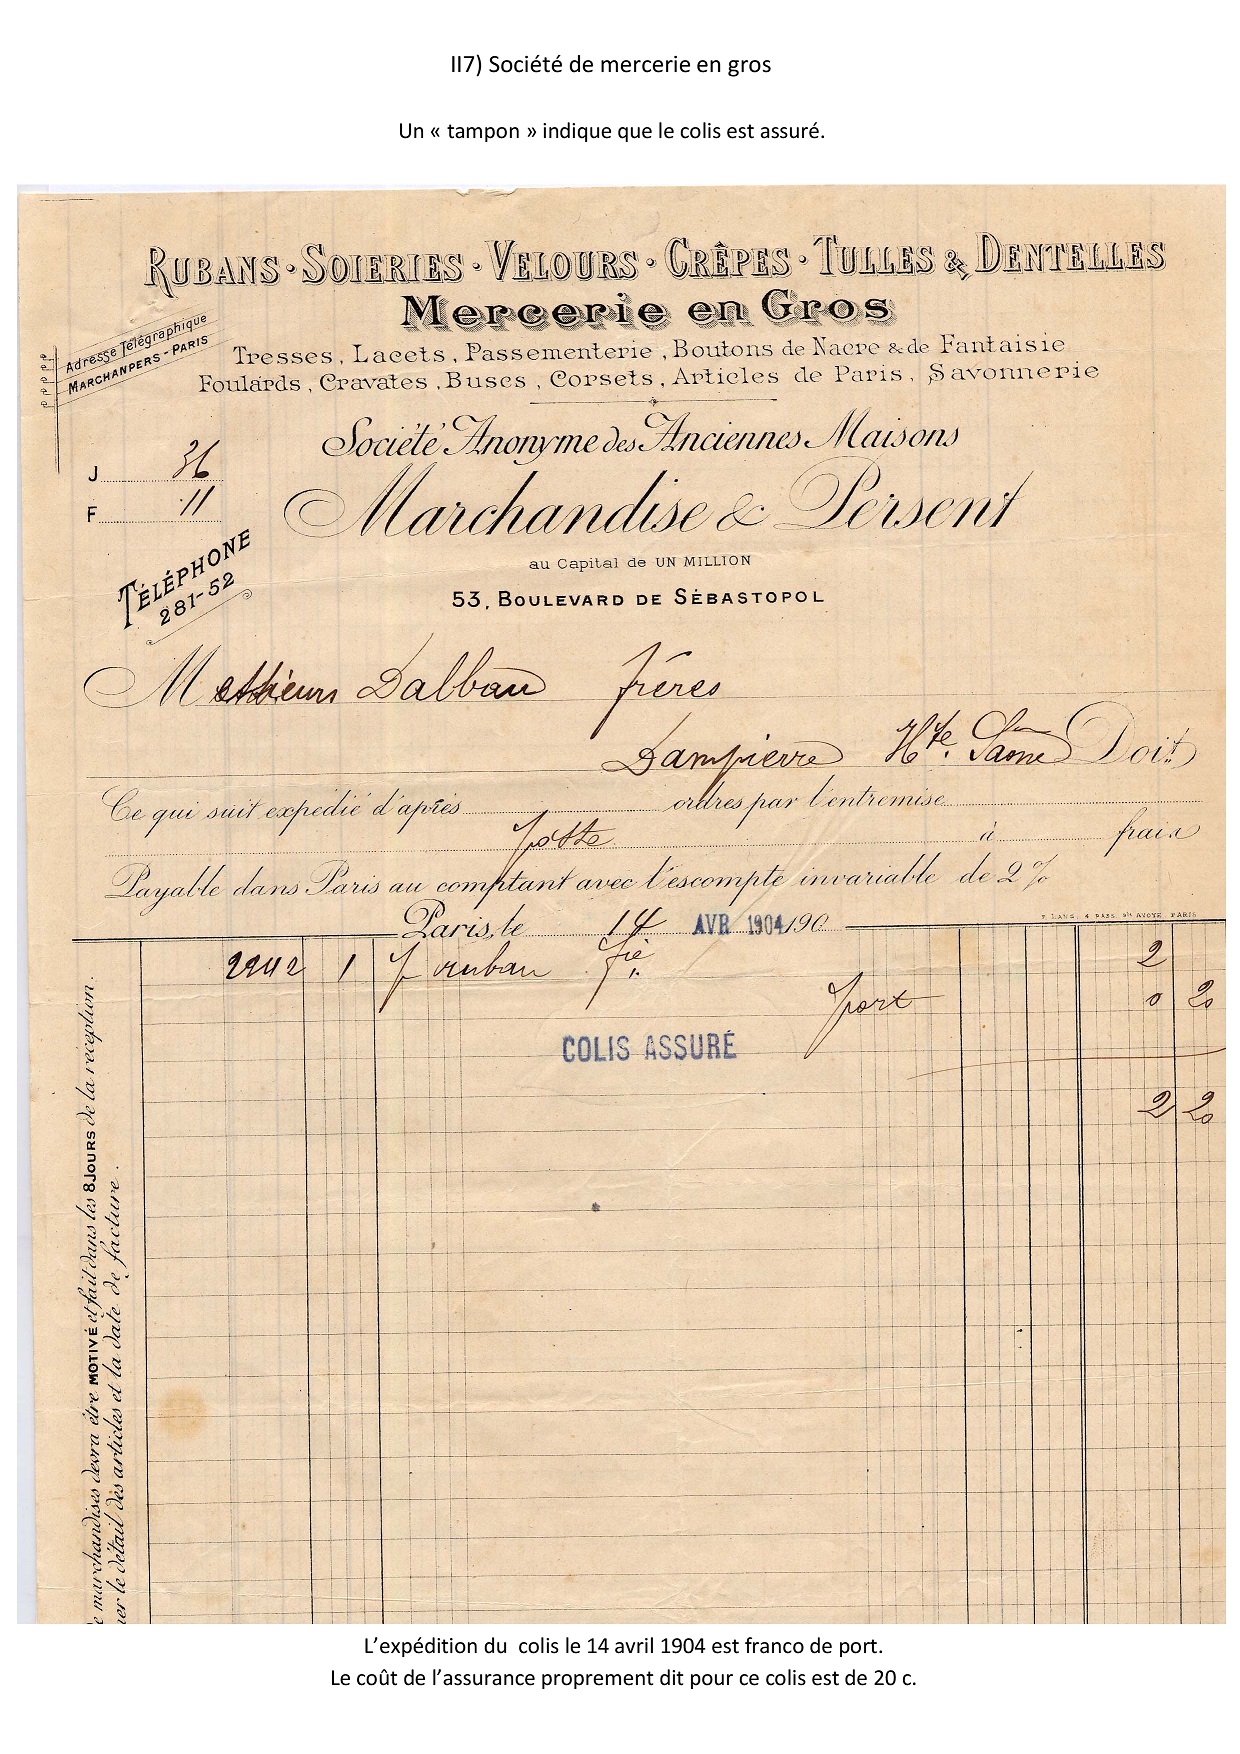 II7) Société de mercerie en gros
Un « tampon » indique que le colis est assuré.
RUBANS · SOIERIES · VELOURS · CRÊPES · TULLES & DENTELLES
Mercerie en Gros
Adresse Télégraphique
MARCHANPERS - PARIS
Tresses, Lacets, Passementerie, Boutons de Nacre & de Fantaisie
Foulards, Cravates, Buscs, Corsets, Articles de Paris, Savonnerie
Société Anonyme des Anciennes Maisons
J 36
F 11
Marchandise & Persent
au Capital de UN MILLION
TÉLÉPHONE
281-52
53, BOULEVARD DE SÉBASTOPOL
Messieurs Dalbau frères
Dampierre Hte Saone Doit
Ce qui suit expédié d'après ordres par l'entremise
Poste à frais
Payable dans Paris au comptant avec l'escompte invariable de 2 %
F. LANG, 4 PASS. Ste AVOYE PARIS
Paris, le 14 AVR 1904 190
2242 1 P ruban 2
port 0 20
COLIS ASSURÉ
2 20
e marchandises devra être MOTIVÉ et fait dans les 8 JOURS de la réception.
uer le détail des articles et la date de facture.
L'expédition du colis le 14 avril 1904 est franco de port.
Le coût de l'assurance proprement dit pour ce colis est de 20 c.